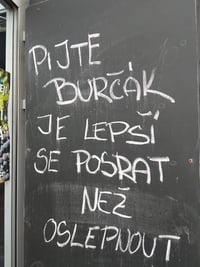 PIJTE
BURČÁK
JE LEPŠÍ
SE POSRAT
NEŽ
OSLEPNOUT